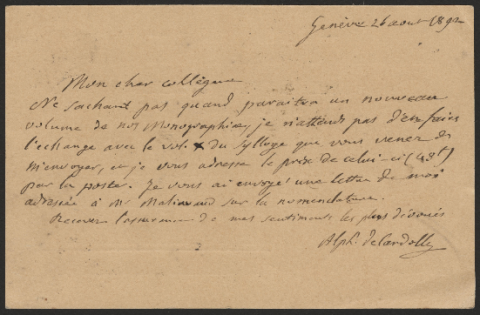 Genève 26 août 1892
Mon cher collègue
Ne sachant pas quand paraîtra un nouveau
volume de nos Monographiae, je n'attends pas d'en faire
l'échange avec le vol. X du Sylloge que vous venez de
m'envoyer, et je vous adresse le prix de celui-ci (48 f)
par la poste. Je vous ai envoyé une lettre de moi
adressée à Mr Malinvaud sur la nomenclature.
Recevez l'expression de mes sentiments les plus dévoués
Alph. de Candolle